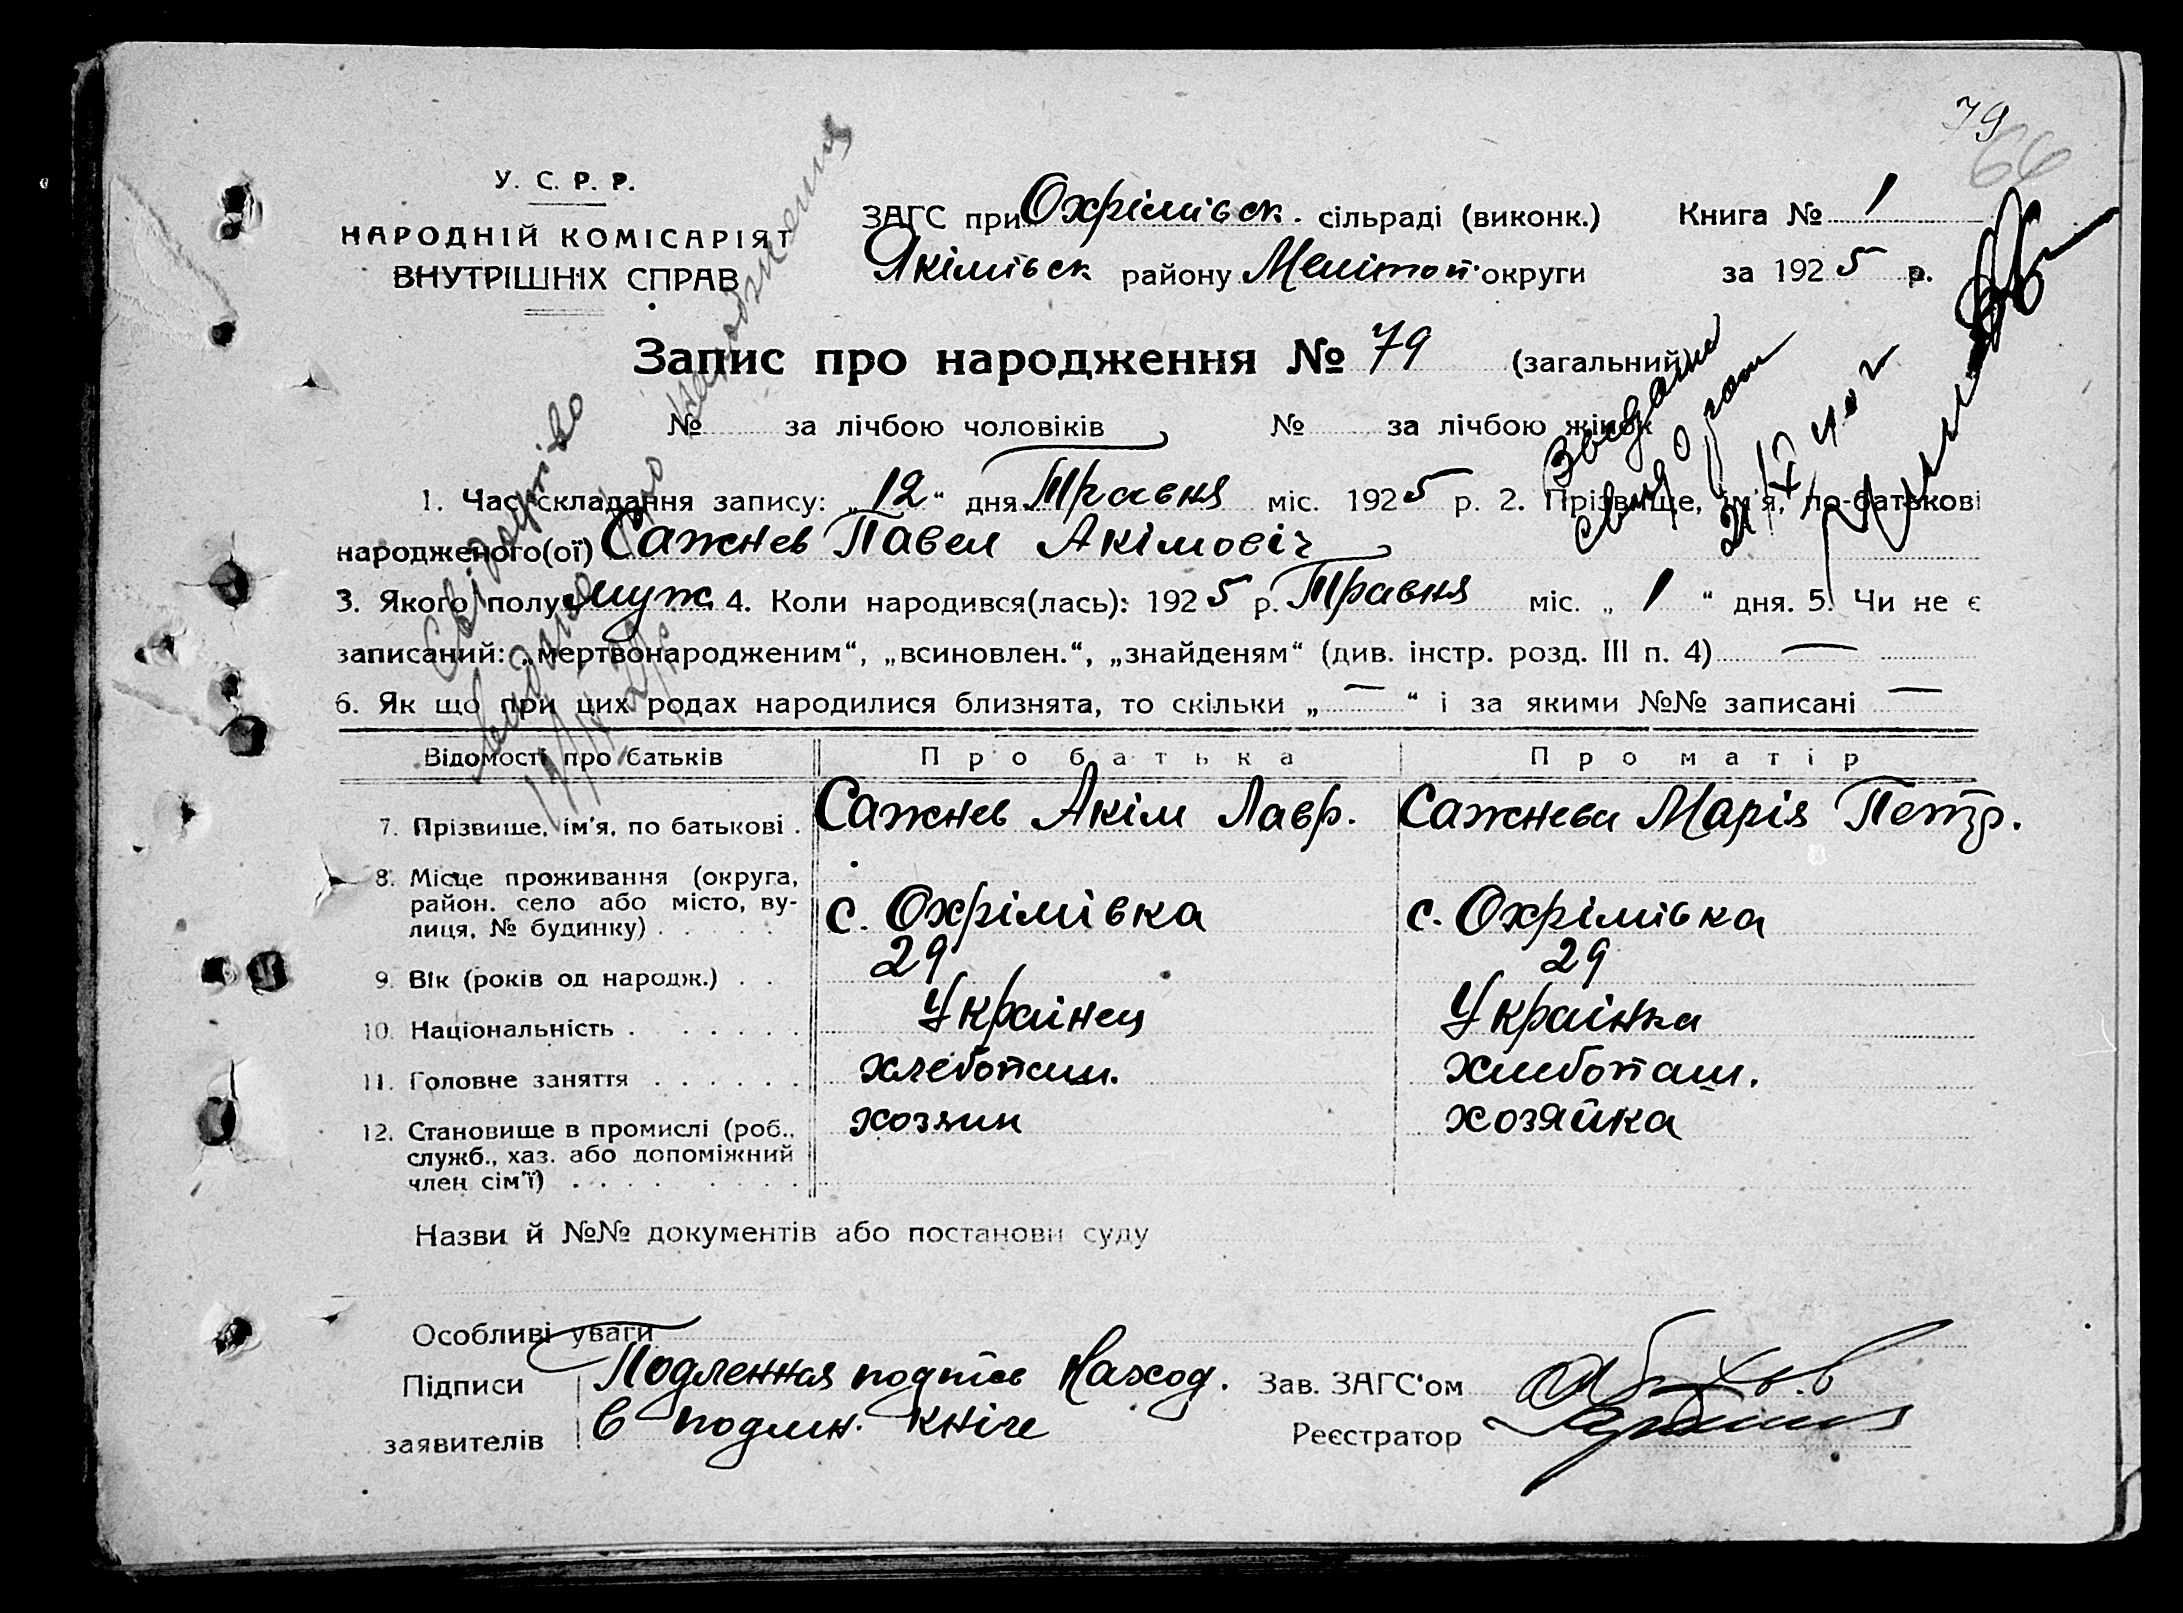 79
66
У. С. Р. Р.
НАРОДНІЙ КОМІСАРІЯТ
ВНУТРІШНІХ СПРАВ
ЗАГС при Охрімівськ. сільраді (виконк.) Книга № 1
Якімівськ району Меліто́п. округи за 1925 р.
Запис про народження № 79 (загальний)
№ за лічбою чоловіків № за лічбою жінок
1. Час складання запису: „12“ дня Травня міс. 1925 р. 2. Прізвище, ім'я, по-батькові
народженого(ої) Сажнев Павел Акімовіч
3. Якого полу муж. 4. Коли народився(лась): 1925 р. Травня міс. „1“ дня. 5. Чи не є
записаний: „мертвонародженим“, „всиновлен.“, „знайденям“ (див. інстр. розд. III п. 4) —
6. Як що при цих родах народилися близнята, то скільки „—“ і за якими №№ записані —
Відомості про батьків Про батька Про матір
7. Прізвище, ім'я, по батькові . Сажнев Акім Лавр. Сажнева Марія Петр.
8. Місце проживання (округа,
район. село або місто, ву-
лиця, № будинку) . . . . . с. Охрімівка с. Охрімівка
9. Вік (років од народж.) . . 29 29
10. Національність . . . . . . . Украінец Украінка
11. Головне заняття . . . . . . хлебопаш. хлебопаш.
12. Становище в промислі (роб., хозяин хозяйка
служб., хаз. або допоміжний
член сім'ї) . . . . . . . .
Назви й №№ документів або постанови суду
Особливі уваги
Підписи Подленная подпісь Наход. Зав. ЗАГС'ом
заявителів в подлін. кнізе Реєстратор
Свідоцтво
видано про народження